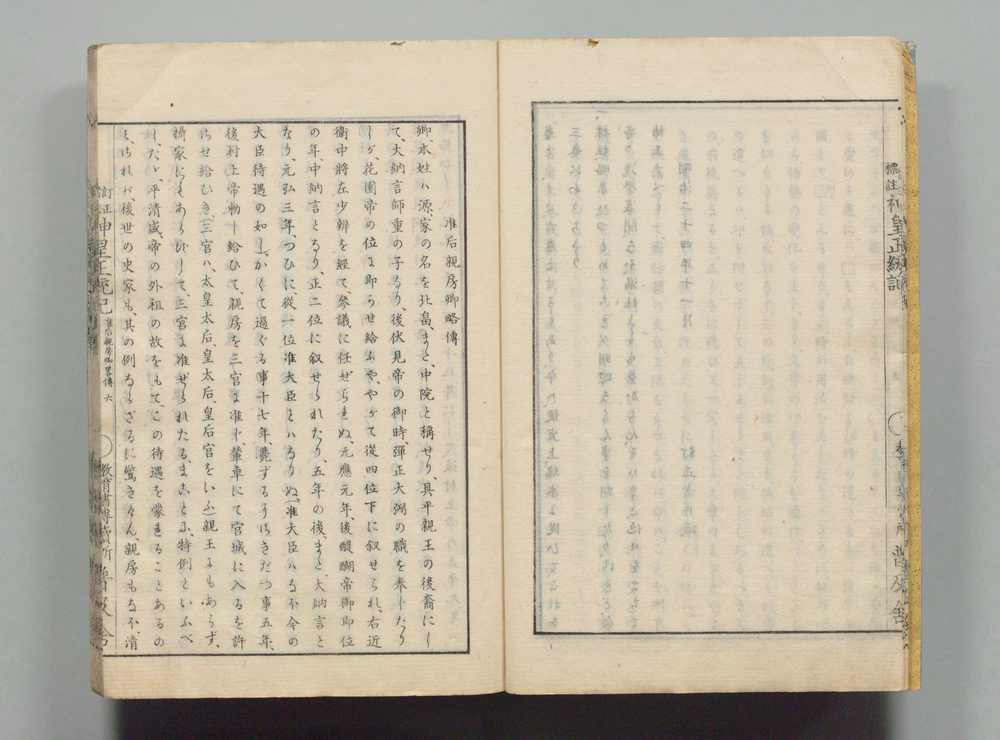 准后親房卿略傳
卿、本姓ハ源、家の名を北畠、また中院と稱せり、具平親王の後裔にし
て、大納言師重の子なり、後伏見帝の御時、彈正大弼の職を奉じたり
しが、花園帝の位に即らせ給ふや、やがて從四位下に叙せられ、右近
衛中將、左少辨を經て、參議に任ぜられぬ、元應元年、後醍醐帝御即位
の年、中納言となり、正二位に叙せられたり、五年の後、また、大納言と
なり、元弘三年、つひに、從一位准大臣とハなりぬ、准大臣ハ、なほ、今の
大臣待遇の如し、かくて過ぐる事十七年、薨ずるにさきだつ事五年、
後村上帝勅し給ひて、親房を三宮に准じ、輦車にて宮城に入るを許
させ給ひき、(三宮ハ、太皇太后、皇太后、皇后宮をいふ)親王にもあらず、
攝家にもあらずして、三宮に准ぜられたるハ、まことに、特例といふべ
し、たゞ、平清盛、帝の外祖の故をもて、この待遇を蒙れることあるの
み、されバ、後世の史家も、其の例ならざるに驚きけん、親房もなほ、清
訂正神皇正統記 准后親房卿略傳 六
教育書專賣所 普及舍
標註神皇正統記
普及舍